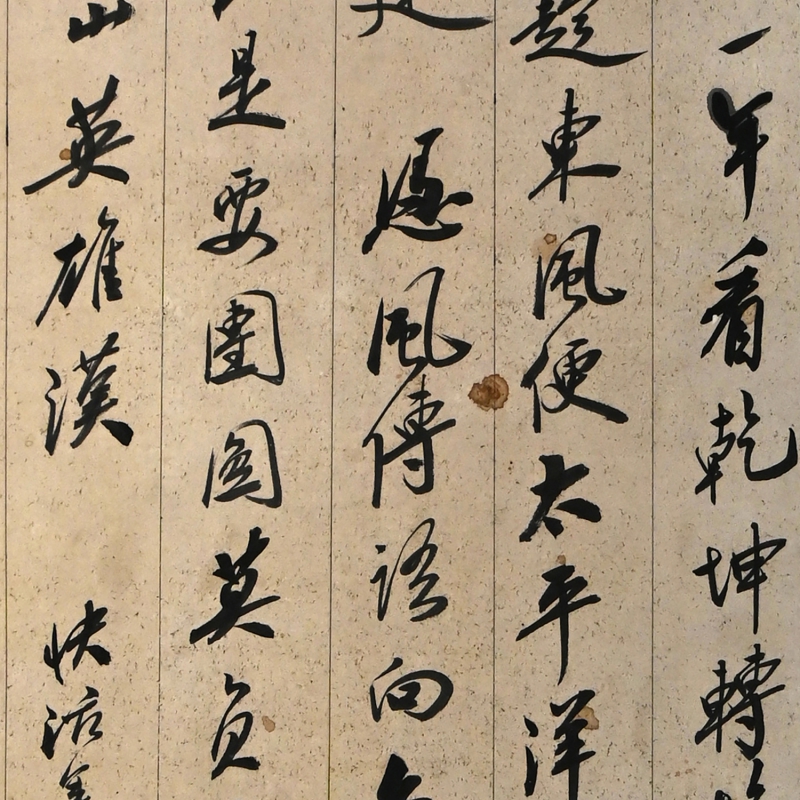 一年看乾坤轉
趁東風便太平洋
憑風傳語向
是要團圓莫負
山英雄漢 快活年